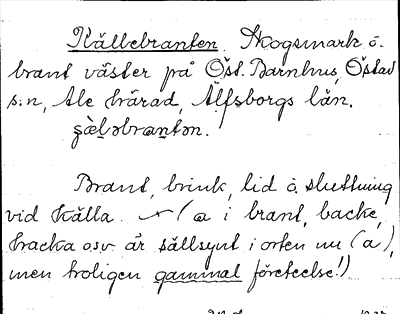 Källebranten. Skogsmark o.
brant väster på Öst. Barnhus, Östad
s:n, Ale härad, Älfsborgs län.
ʂæ̀ḷəbrantən.
Brant, brink, lid o. sluttning
vid källa. (a i brant, backe,
hacka osv. är sällsynt i orten nu (a),
men troligen gammal företeelse!)